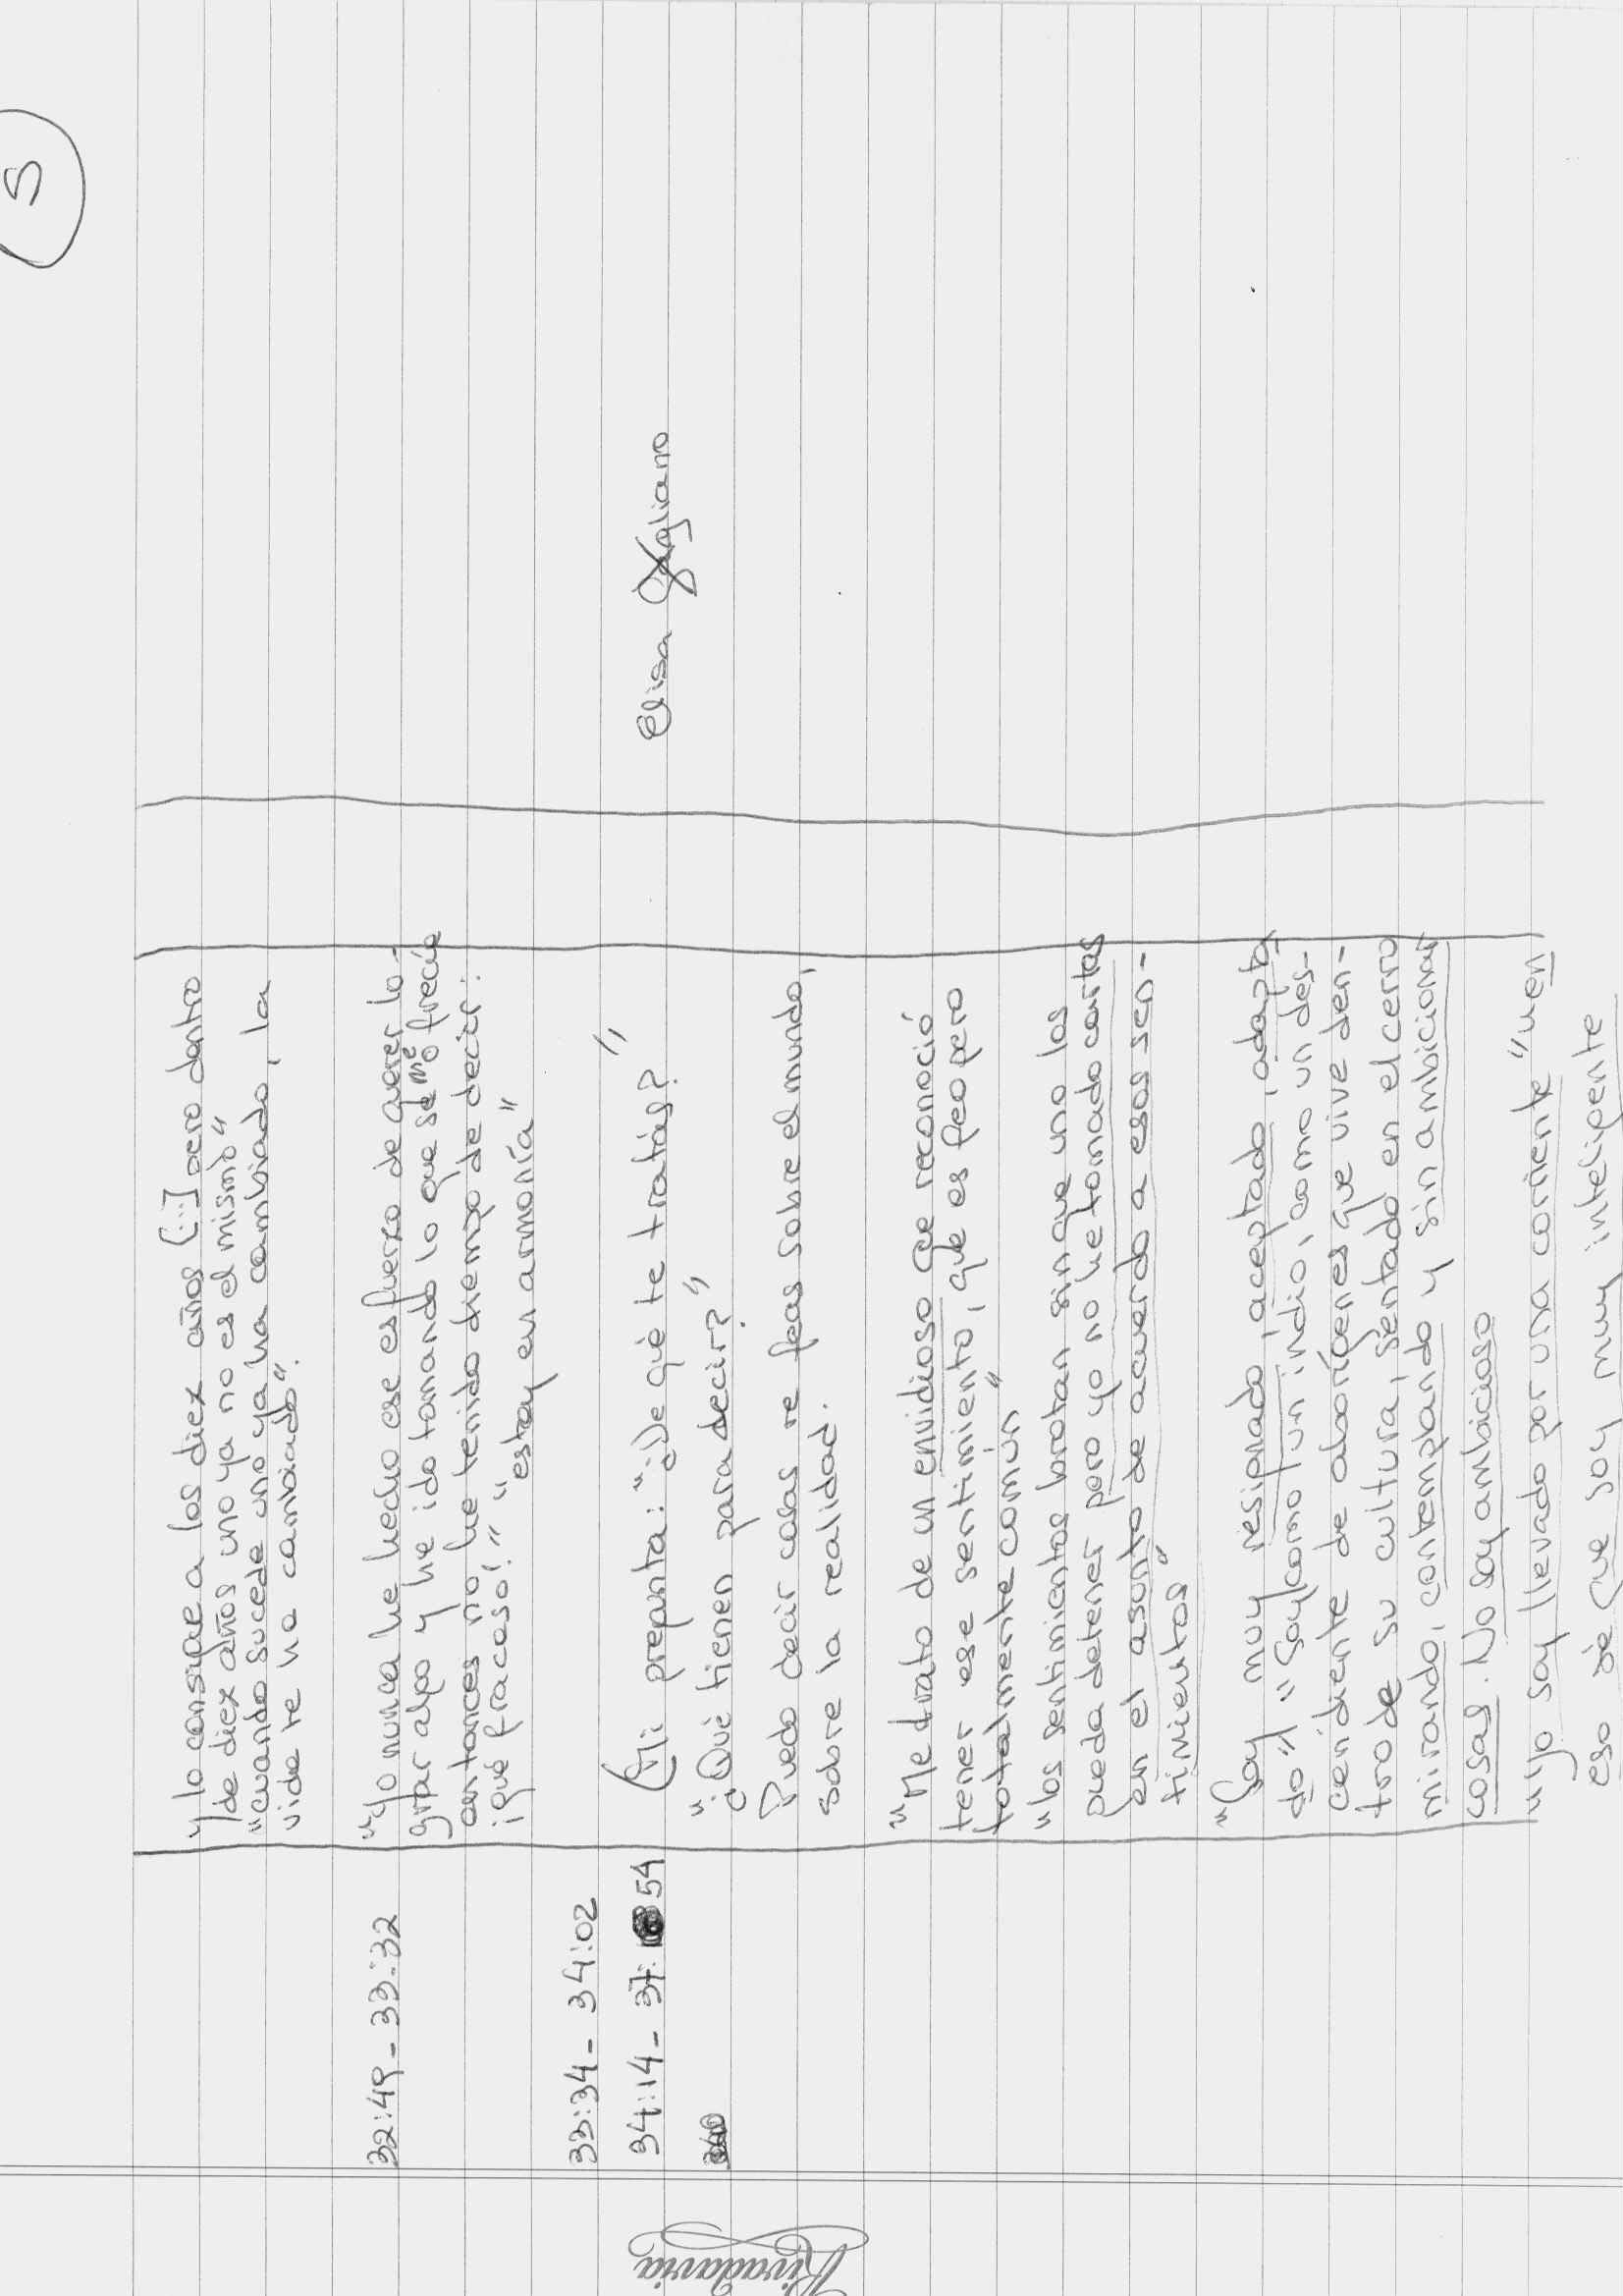 5
y lo consigue a los diez años [...] pero dentro
de diez años uno ya no es el mismo"
"cuando sucede uno ya ha cambiado, la
vida te ha cambiado".
32:49 - 33:32
"Yo nunca he hecho ese esfuerzo de querer lo-
grar algo y he ido tomando lo que se me ofrecía
entonces no he tenido tiempo de decir:
¡qué fracaso!" "estoy en armonía"
33:34 - 34:02
34:14 - 37: 54
(Mi pregunta: "¿De qué te tratás?"
Elisa Gagliano
"¿Qué tienen para decir?"
Puedo decir cosas re feas sobre el mundo,
sobre la realidad.
"Me trato de un envidioso que reconoció
tener ese sentimiento, que es feo pero
totalmente común"
"los sentimientos brotan sin que uno los
pueda detener pero yo no he tomado cartas
en el asunto de acuerdo a esos sen-
timientos"
"Soy muy resignado, aceptado, adapta
do" "Soy como un indio, como un des-
cendiente de aborígenes que vive den-
tro de su cultura, sentado en el cerro
mirando, contemplando y sin ambicionar
cosas. No soy ambicioso
"Yo soy llevado por una corriente" "en
eso sé que soy muy inteligente
Rivadavia